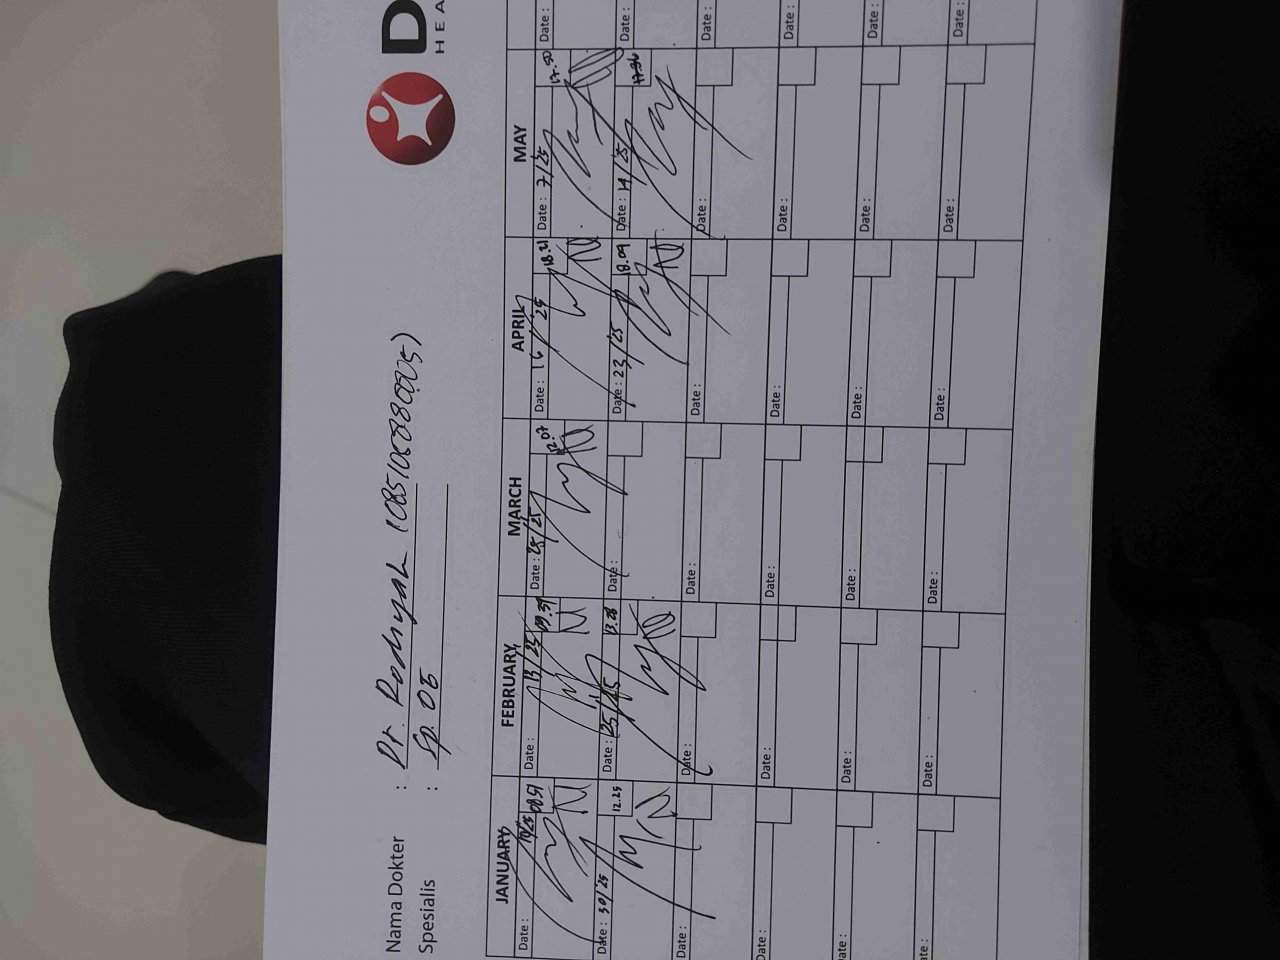 D
HEA
Nama Dokter : Dr. Rodiyah (085106880005)
Spesialis : Sp. OG
JANUARY FEBRUARY MARCH APRIL MAY
Date : 10/25 08.51 Date : 13/25 09.39 Date : 25/25 12.07 Date : 16/25 18.21 Date : 7/25 17.50 Date :
Date : 30/25 12.25 Date : 25/25 13.28 Date : Date : 23/25 18.09 Date : 14/25 17.36 Date :
Date : Date : Date : Date : Date : Date :
Date : Date : Date : Date : Date : Date :
Date : Date : Date : Date : Date : Date :
Date : Date : Date : Date : Date : Date :